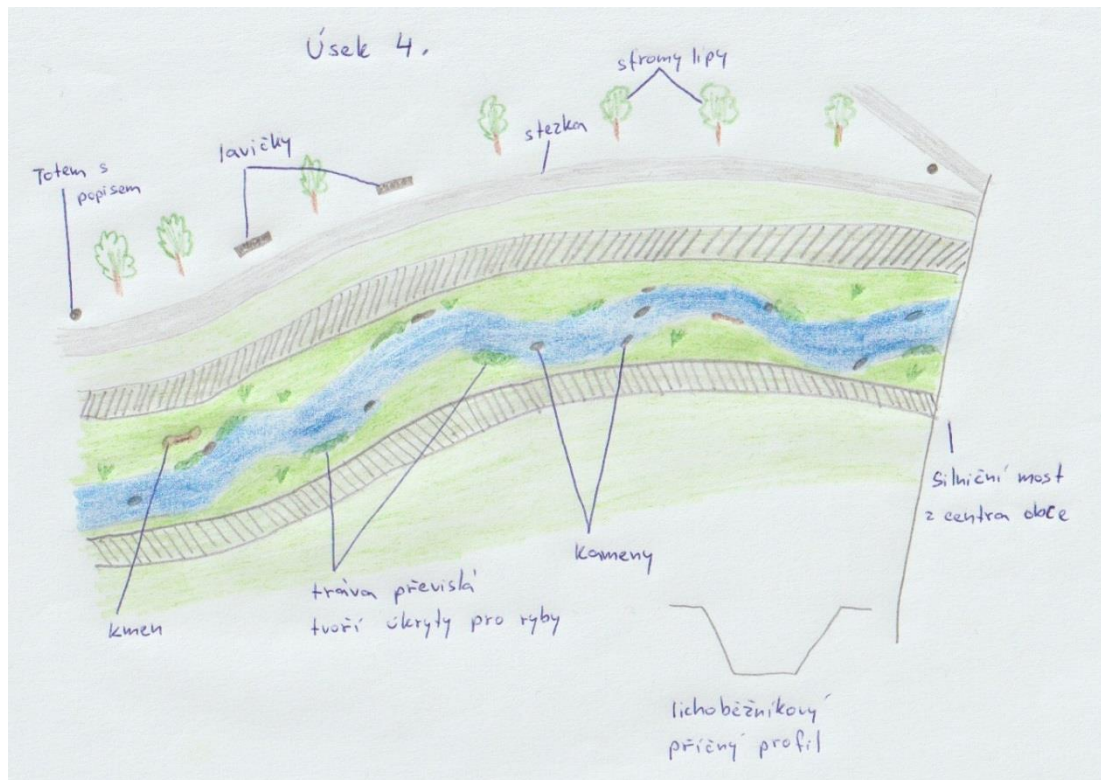 Úsek 4.
stromy lipy
stezka
lavičky
Totem s
popisem
Silniční most
z centra obce
kameny
tráva převislá
tvoří úkryty pro ryby
kmen
lichoběžníkový
příčný profil